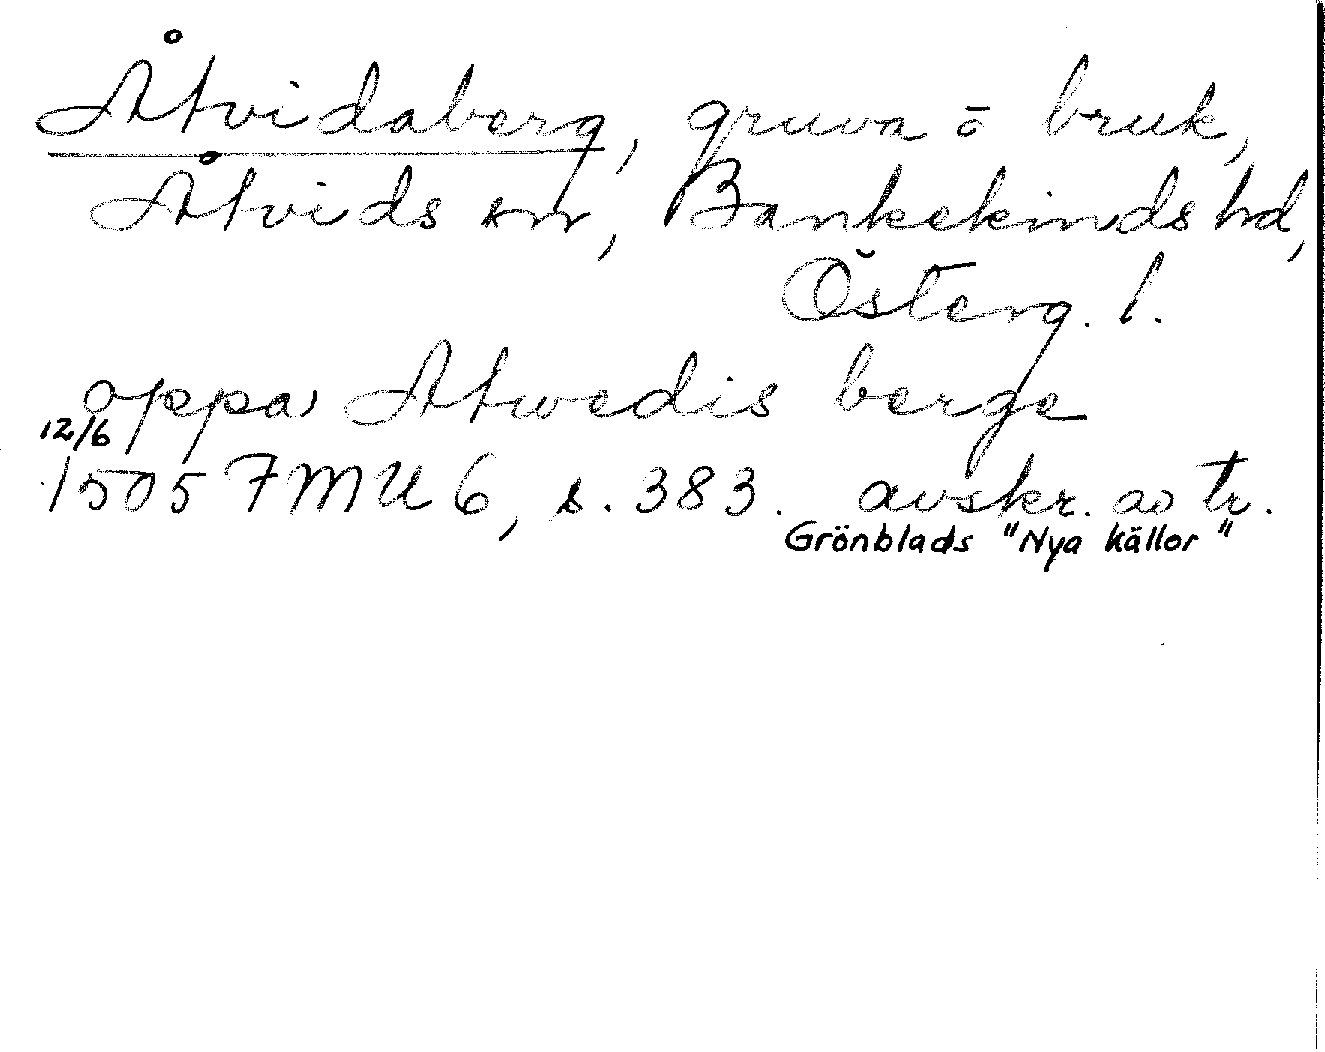 Åtvidaberg, gruva o bruk,
Åtvids sn, Bankekinds hd,
Österg. l.
oppa Atwedis berge
12/6
1505 FMU 6, s. 383. avskr. av tr.
Grönblads "Nya källor"